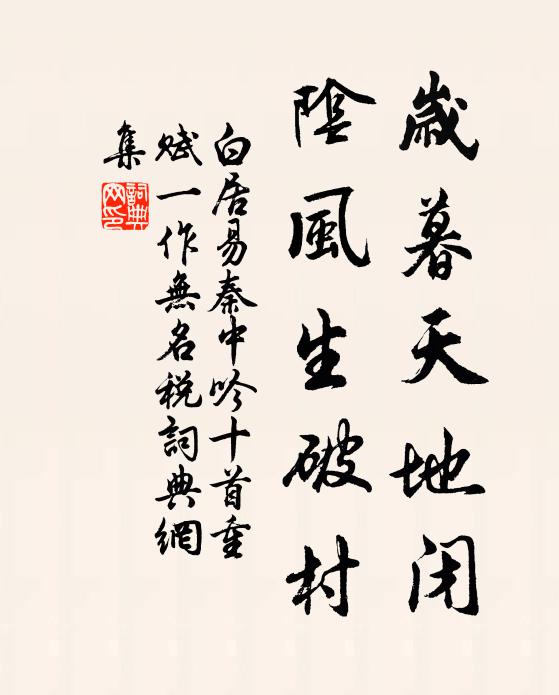 歲暮天地闭
陰風生破村
白居易秦中吟十首重
賦一作無名税詞典網
集
詞典
网印